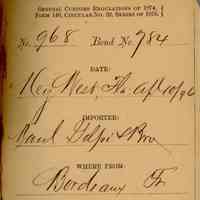 General Customs Regulations of 1874,
Form 140, Circular No. 32, Series of 1876.
No. 968 Bond No. 784
DATE:
Key West, Fla
IMPORTER:
& Bro
WHERE FROM:
Bordeaux Fr